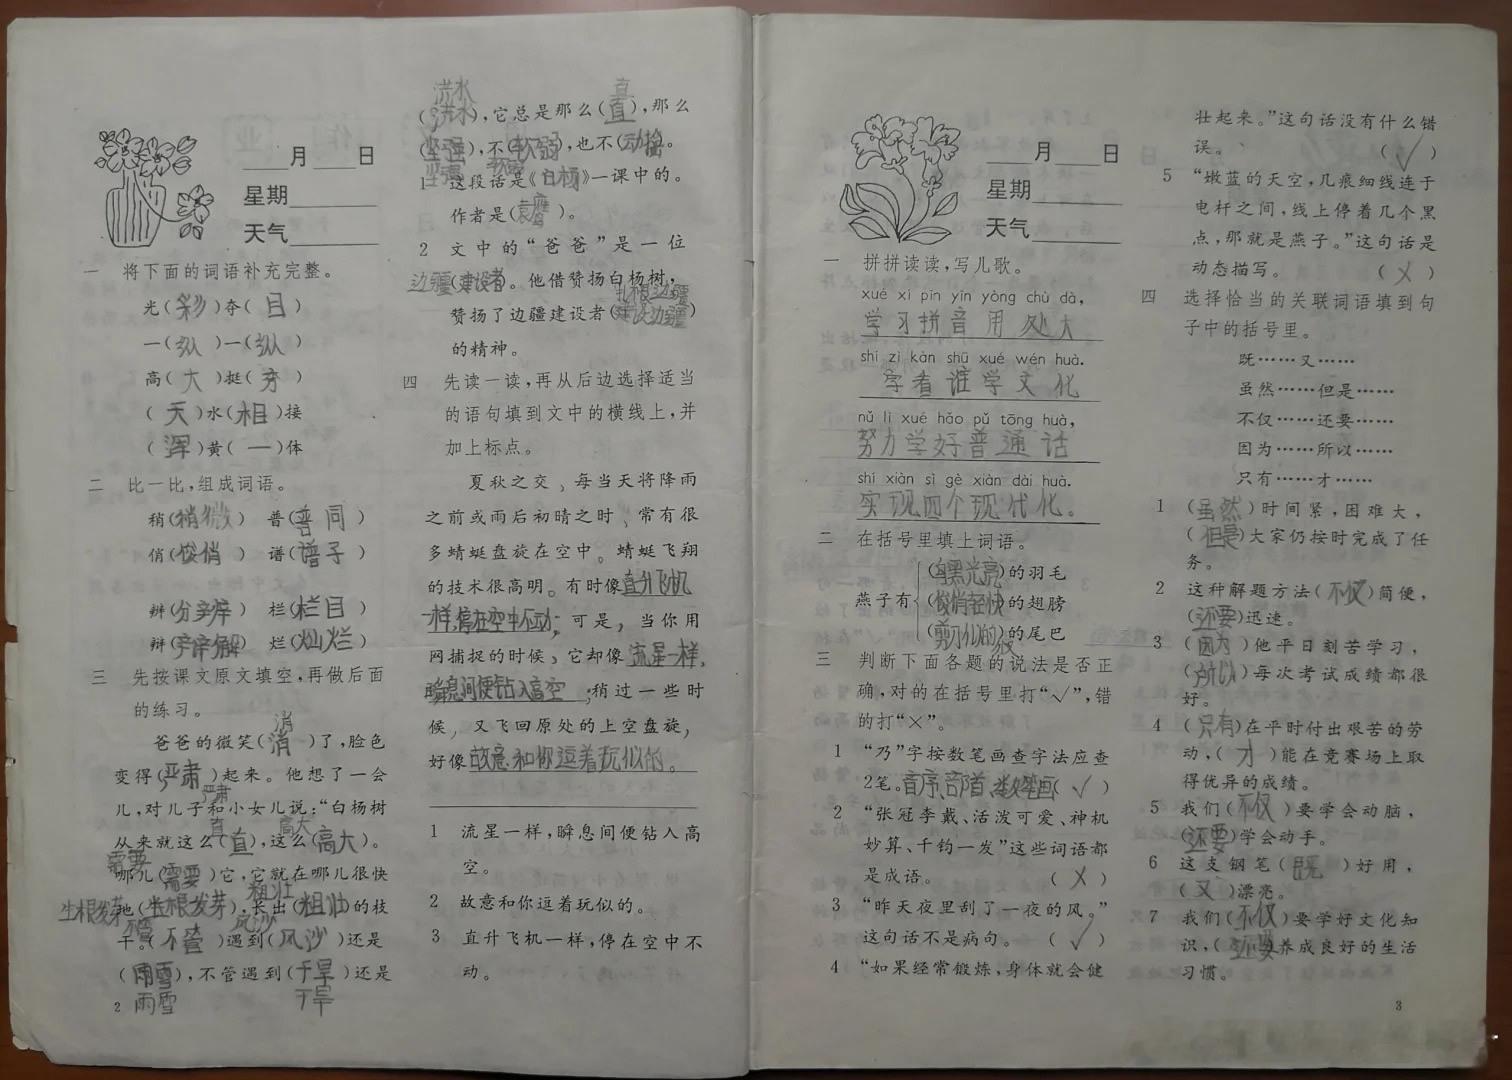 ____月____日
星期________
天气________
一 将下面的词语补充完整。
光(彩)夺(目)
一(纵)一(纵)
高(大)挺(秀)
(天)水(相)接
(浑)黄(一)体
二 比一比,组成词语。
稍(稍微) 普(普同)
俏(俊俏) 谱(谱子)
辨(分辨) 栏(栏目)
辩(辩解) 烂(灿烂)
三 先按课文原文填空,再做后面
的练习。
消
爸爸的微笑(消)了,脸色
变得(严肃)起来。他想了一会
严肃
儿,对儿子和小女儿说:“白杨树
直 高大
从来就这么(直),这么(高大)。
需要
哪儿(需要)它,它就在哪儿很快
粗壮
生根发芽
地(生根发芽),长出(粗壮)的枝
不管 风沙
干。(不管)遇到(风沙)还是
(雨雪),不管遇到(干旱)还是
2 雨雪 干旱
洪水 直
(洪水),它总是那么(直),那么
(坚强),不(软弱),也不(动摇)。
坚强 软弱
1 这段话是《白杨》一课中的。
作者是(袁鹰)。
2 文中的“爸爸”是一位
边疆(建设者)。他借赞扬白杨树,
扎根边疆
赞扬了边疆建设者(建设边疆)
的精神。
四 先读一读,再从后边选择适当
的语句填到文中的横线上,并
加上标点。
夏秋之交、每当天将降雨
之前或雨后初晴之时、常有很
多蜻蜓盘旋在空中。蜻蜓飞翔
的技术很高明。有时像直升飞机
一样,停在空中不动;可是,当你用
网捕捉的时候、它却像流星一样,
瞬息间便钻入高空;稍过一些时
候,又飞回原处的上空盘旋,
好像故意和你逗着玩似的。
1 流星一样,瞬息间便钻入高
空。
2 故意和你逗着玩似的。
3 直升飞机一样,停在空中不
动。
____月____日
星期________
天气________
一 拼拼读读,写儿歌。
xué xí pīn yīn yòng chù dà,
学习拼音用处大
shí zì kàn shū xué wén huà.
字看谁学文化
nǔ lì xué hǎo pǔ tōng huà,
努力学好普通话
shí xiàn sì gè xiàn dài huà.
实现四个现代化。
二 在括号里填上词语。
(乌黑光亮)的羽毛
燕子有(俊俏轻快)的翅膀
(剪刀似的)的尾巴
三 判断下面各题的说法是否正
确,对的在括号里打“√”,错
的打“×”。
1 “乃”字按数笔画查字法应查
2笔。音序、部首、数笔画(√)
2 “张冠李戴、活泼可爱、神机
妙算、千钧一发”这些词语都
是成语。 (×)
3 “昨天夜里刮了一夜的风。”
这句话不是病句。 (√)
4 “如果经常锻炼,身体就会健
壮起来。”这句话没有什么错
误。 (√)
5 “嫩蓝的天空,几痕细线连于
电杆之间,线上停着几个黑
点,那就是燕子。”这句话是
动态描写。 (×)
四 选择恰当的关联词语填到句
子中的括号里。
既……又……
虽然……但是……
不仅……还要……
因为……所以……
只有……才……
1 (虽然)时间紧,困难大,
(但是)大家仍按时完成了任
务。
2 这种解题方法(不仅)简便,
(还要)迅速。
3 (因为)他平日刻苦学习,
(所以)每次考试成绩都很
好。
4 (只有)在平时付出艰苦的劳
动,(才)能在竞赛场上取
得优异的成绩。
5 我们(不仅)要学会动脑,
(还要)学会动手。
6 这支钢笔(既)好用,
(又)漂亮。
7 我们(不仅)要学好文化知
识,(还要)养成良好的生活
习惯。
3